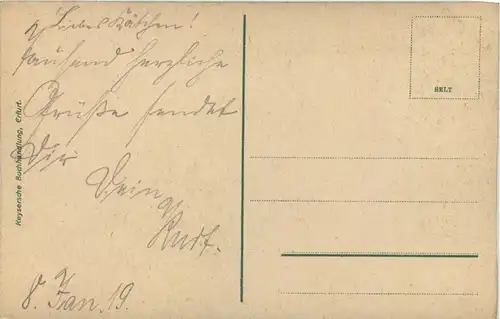 Liebes Kätchen!
tausend herzliche
Grüße sendet
Dir
Dein
Rudf.
8. Jan. 19.
Keysersche Buchhandlung, Erfurt.
SELT